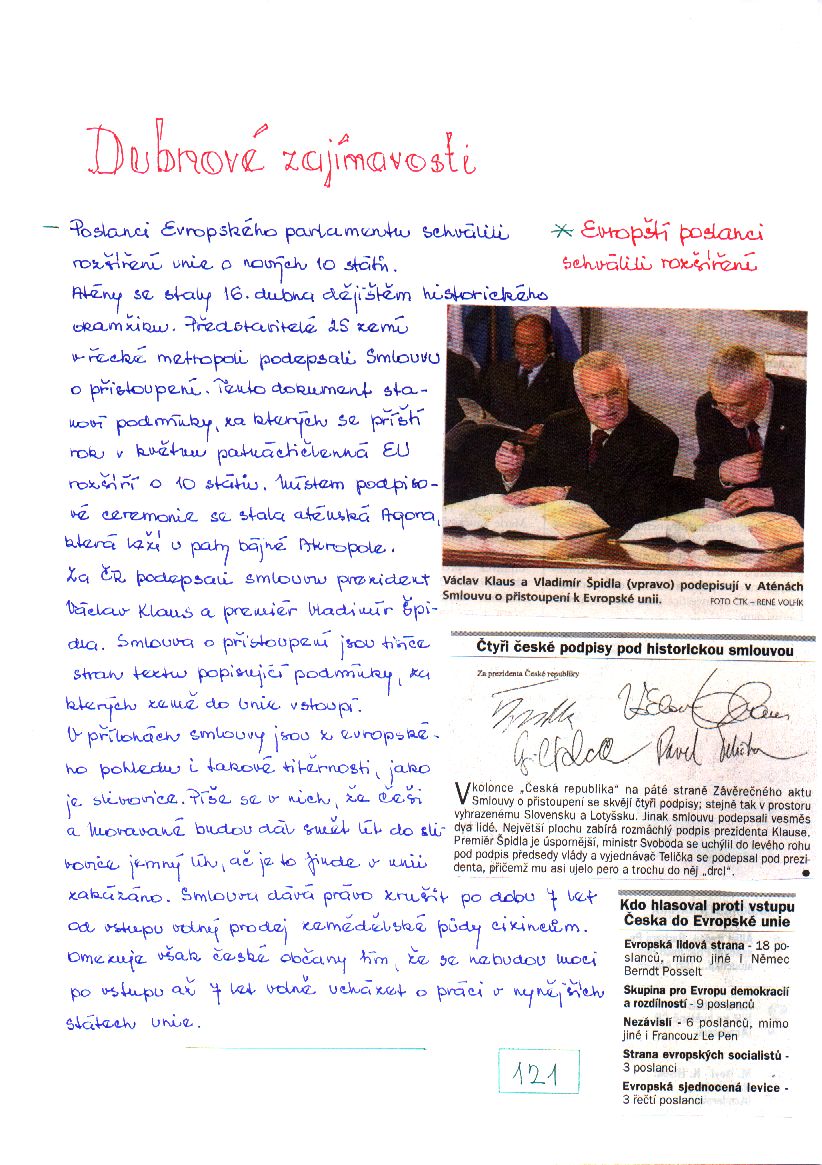 Dubnové zajímavosti
— Poslanci Evropského parlamentu schválili
rozšíření unie o nových 10 států.
Atény se staly 16. dubna dějištěm historického
okamžiku. Představitelé 25 zemí
v řecké metropoli podepsali Smlouvu
o přistoupení. Tento dokument sta-
noví podmínky, za kterých se příští
rok v květnu patnáctičlenná EU
rozšíří o 10 států. Místem podpiso-
vé ceremonie se stala aténská Agora,
která leží u paty bájné Akropole.
Za ČR podepsali smlouvu prezident
Václav Klaus a premiér Vladimír Špi-
dla. Smlouva o přistoupení jsou tisíce
stran textu popisující podmínky, za
kterých země do Unie vstoupí.
V přílohách smlouvy jsou z evropské-
ho pohledu i takové titěrnosti, jako
je slivovice. Píše se v nich, že Češi
a Moravané budou dál smět lít do sli-
vovice jemný líh, ač je to jinde v unii
zakázáno. Smlouva dává právo zrušit po dobu 7 let
od vstupu volný prodej zemědělské půdy cizincům.
Omezuje však české občany tím, že se nebudou moci
po vstupu až 7 let volně ucházet o práci v nynějších
státech unie.
* Evropští poslanci
schválili rozšíření
Václav Klaus a Vladimír Špidla (vpravo) podepisují v Aténách
Smlouvu o přistoupení k Evropské unii.
FOTO ČTK – RENÉ VOLFÍK
Čtyři české podpisy pod historickou smlouvou
Za prezidenta České republiky
Václav Klaus
Pavel Telička
V kolonce „Česká republika“ na páté straně Závěrečného aktu
Smlouvy o přistoupení se skvějí čtyři podpisy; stejně tak v prostoru
vyhrazenému Slovensku a Lotyšsku. Jinak smlouvu podepsali vesměs
dva lidé. Největší plochu zabírá rozmáchlý podpis prezidenta Klause.
Premiér Špidla je úspornější, ministr Svoboda se uchýlil do levého rohu
pod podpis předsedy vlády a vyjednávač Telička se podepsal pod prezi-
denta, přičemž mu asi ujelo pero a trochu do něj „drcl“.
Kdo hlasoval proti vstupu
Česka do Evropské unie
Evropská lidová strana - 18 po-
slanců, mimo jiné i Němec
Berndt Posselt
Skupina pro Evropu demokracií
a rozdílností - 9 poslanců
Nezávislí - 6 poslanců, mimo
jiné i Francouz Le Pen
Strana evropských socialistů -
3 poslanci
Evropská sjednocená levice -
3 řečtí poslanci
121